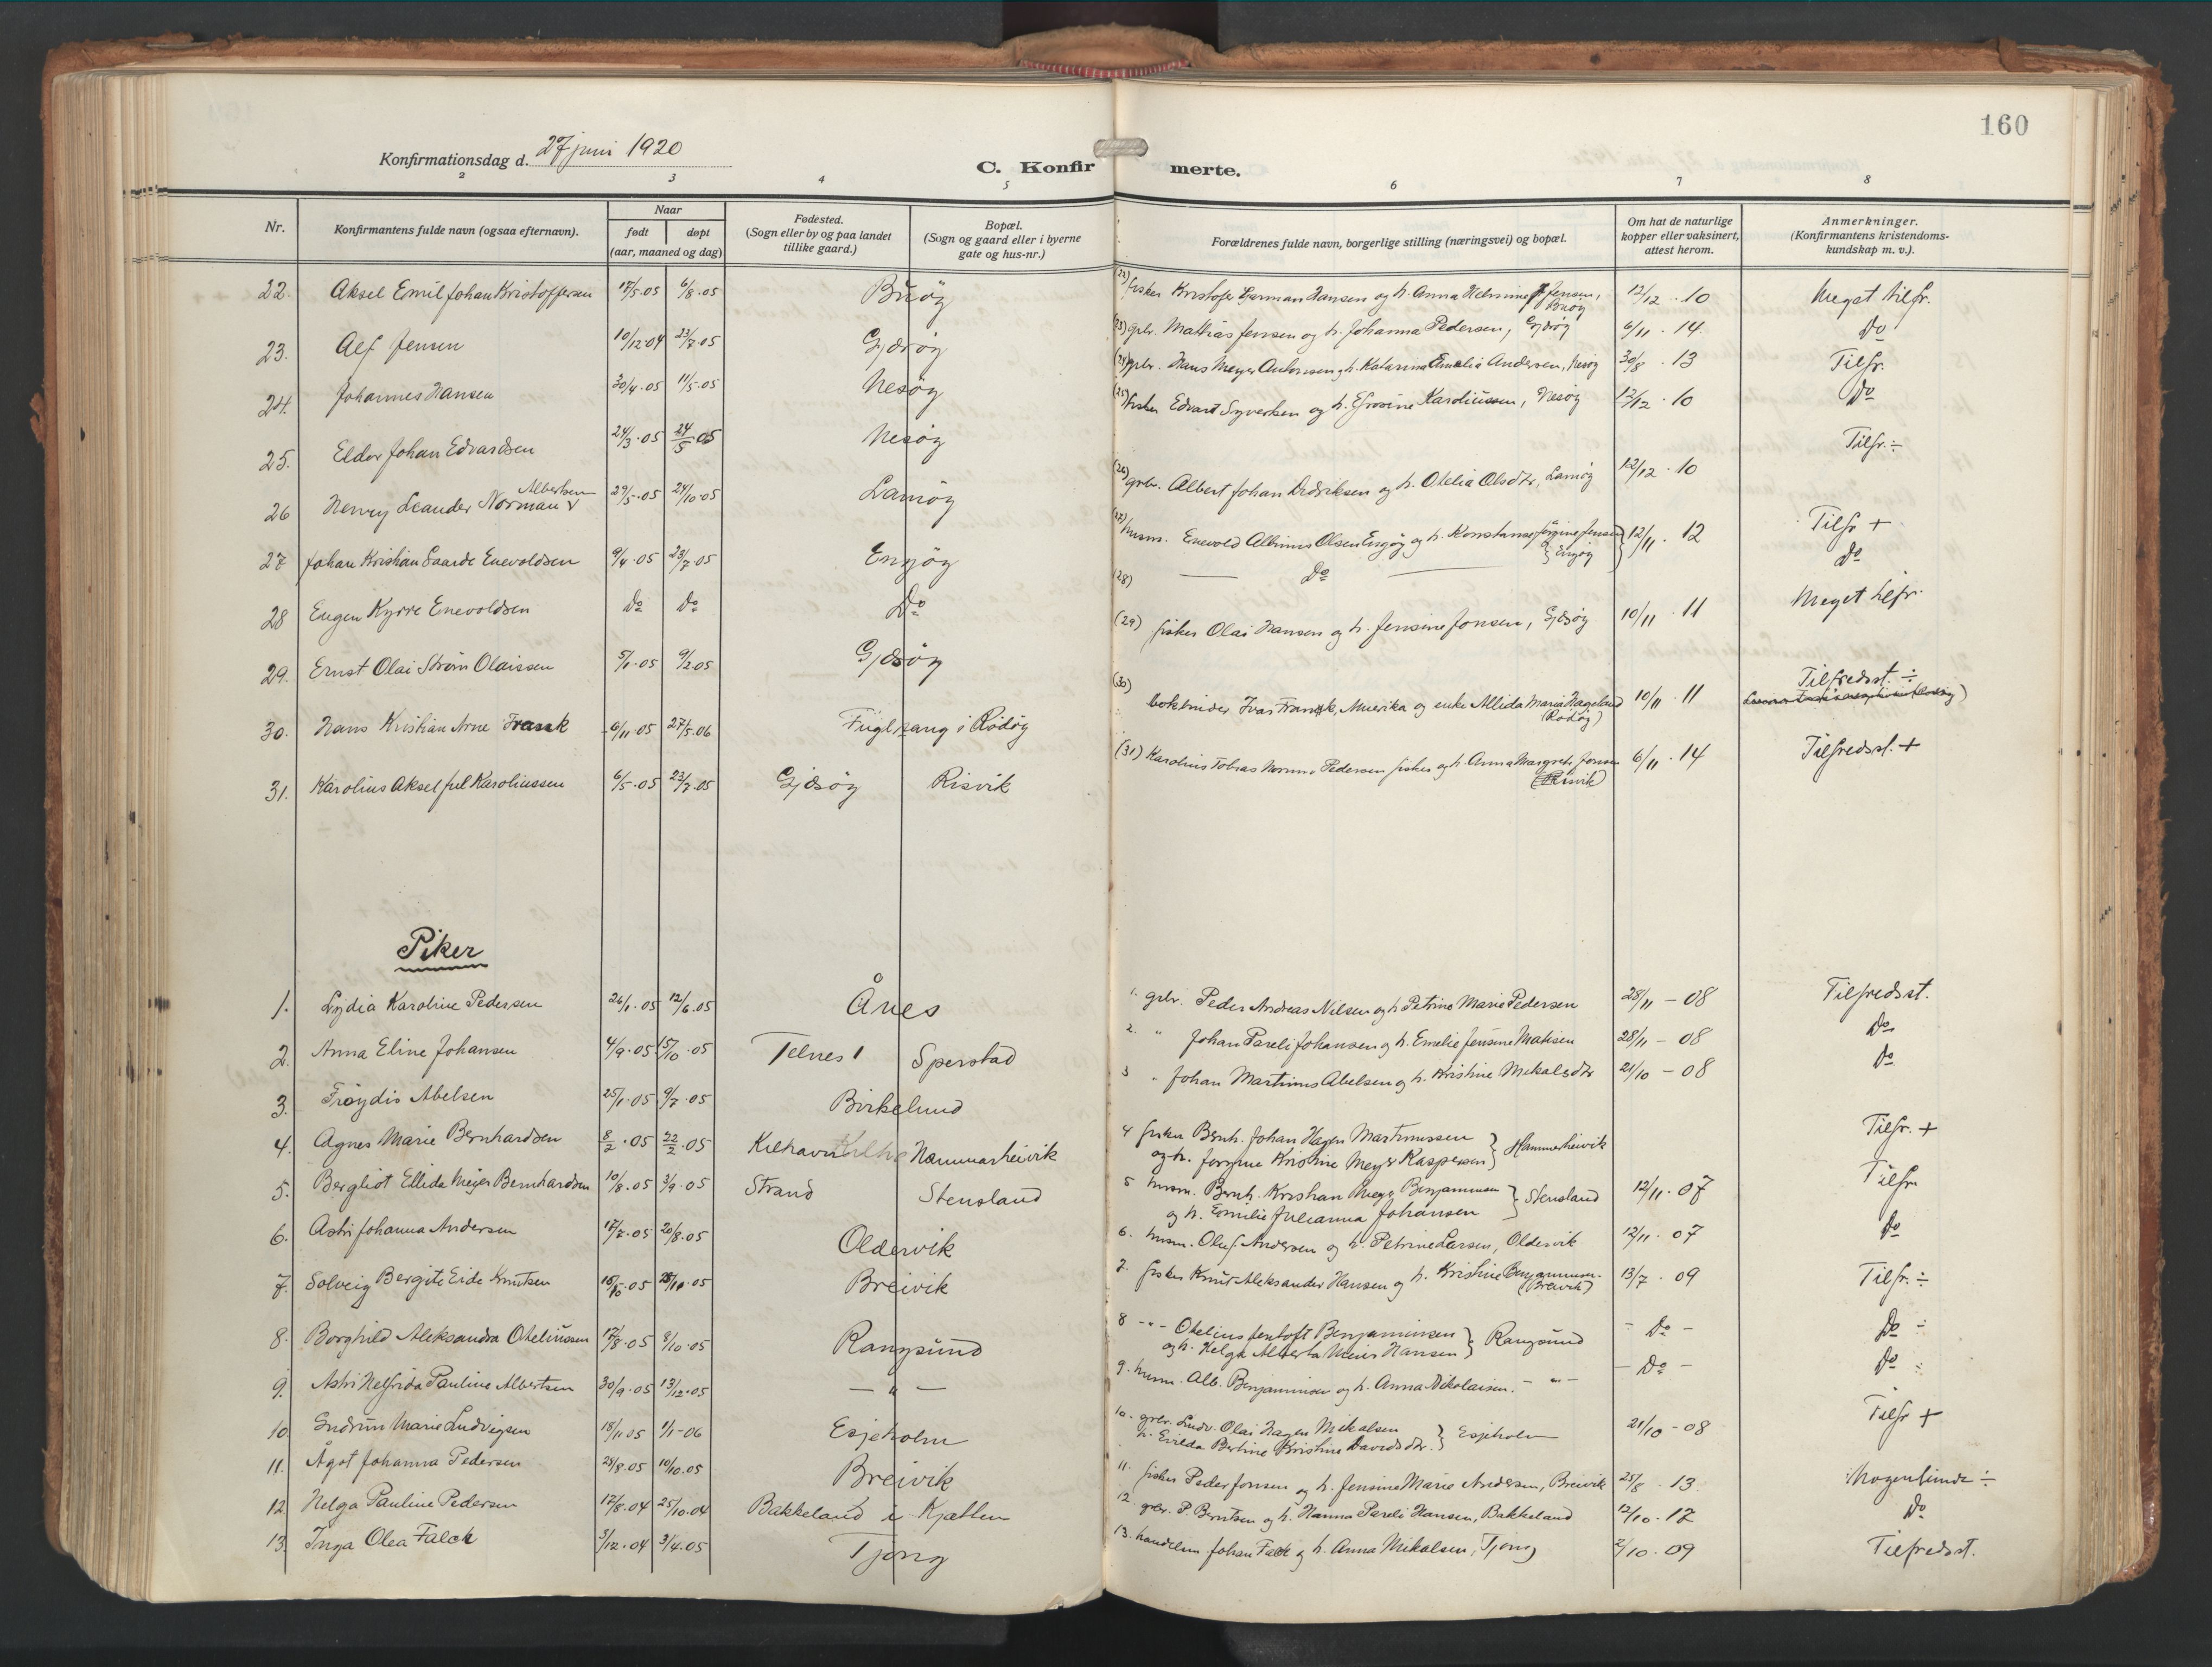 160
Konfirmationsdag d. 27 juni 1920
C. Konfirmerte.
2 3 4 5 6 7 8
Nr.
Konfirmantens fulde navn (ogsaa efternavn).
Naar
født døpt
(aar, maaned og dag)
Fødested.
(Sogn eller by og paa landet
tillike gaard.)
Bopæl.
(Sogn og gaard eller i byerne
gate og hus-nr.)
Forældrenes fulde navn, borgerlige stilling (næringsvei) og bopæl.
Om hat de naturlige
kopper eller vaksinert,
attest herom.
Anmerkninger.
(Konfirmantens kristendoms-
kundskap m. v.).
22. Aksel Emil Johan Kristoffersen 17/5.05 6/8.05 Buöy (22) fisker Kristofer Hansen og h. Anna Jensen, Buöy 12/12.10 Meget tilfr.
23. Alf Jensen 10/12.04 23/7.05 Gjdsöy (23) grbr. Mathias Jenssen og h. Johanna Pedersen, Gjdsöy 6/11.14 Do
24. Johannes Hansen 30/4.05 11/5.05 Nesöy (24) grbr. Hans Meyer Antonsen og h. Katarina Emelia Andersen, Nesöy 30/8.13 Tilfr.
25. Eldor Johan Edvardsen 24/3.05 24/5 05 Nesöy (25) fisker Edvart Syvertsen og h. Efrosine Karoliussen, Nesöy 12/12.10 Do
26 Henry Leander Norman Albertsen 29/5.05 24/10.05 Lamöy (26) grbr. Albert Johan Didriksen og h. Otelia Olsdtr, Lamöy 12/12.10 Tilfr. ÷
27 Johan Kristian Enevoldsen 9/4.05 23/7.05 Engöy (27) husm. Enevold Albinus Olsen Engöy og h. Konstanse Jörgine Jensen } Engöy 12/11. 12 Tilfr +
28 Eugen Kyrre Enevoldsen Do Do Do (28) Do Do
29. Ernst Olai Ström Olaissen 5/1.05 9/2.05 Gjdsöy (29) fisker Olai Hansen og h. Jensine Jonsen, Gjdsöy 10/11.11 Meget tilfr.
30. Hans Kristian Arne Frank 6/11.05 27/5.06 Fuglsang i Rödöy (30) bokbinder Ivar Frank, Amerika og enke Allida Maria Hageland (Rödöy) 10/11.11 Tilfredsst. ÷
31. Karolius Aksel Jul Karoliussen 6/5.05 23/7.05 Gjdsöy Risvik (31) Karolius Tobias Pedersen fisker og h. Anna Margreth Jonsen (Risvik) 6/11.14 Tilfredsst. +
Piker
1. Lydia Karoline Pedersen 26/1.05 12/6.05 Ånes 1. grbr. Peder Andreas Nilsen og h Petrine Marie Pedersen 28/11 – 08 Tilfredsst.
2. Anna Eline Johansen 4/9.05 15/10.05 Telnes Sperstad 2. " Johan Pareli Johansen og h. Emelie Jensine Matisen 28/11 – 08 Do
3. Fröydis Abelsen 25/1.05 9/7.05 Birkelund 3 " Johan Martinus Abelsen og h. Kristine Mekalsdtr 21/10 – 08 Do
4. Agnes Marie Bernhardsen 8/2.05 22/2.05 Kilhavn Hammarheivik 4 fisker Bernh. Johan Hagen Martinussen
og h. Kristine Meyer Kaspersen } Hammerheivik Tilfr. +
5. Bergliot Ellida Meyer Bernhardsen 10/8.05 3/9.05 Strand Stensland 5 husm. Bernh. Kristian Meyer Benjaminsen
og h. Emilie Julianna Johansen } Stensland 12/11.07 Tilfr.
6. Astri Johanna Andersen 17/7.05 20/8.05 Oldervik 6. husm. Oluf Andersen og h. Petrine Larsen, Oldervik 12/11. 07 Do
7. Solveig Bergite Eide Knutsen 16/10.05 28/11.05 Breivik 7. fisker Knut Aleksander Hansen og h. Kristine Benjaminsen. (Breivik) 13/7.09 Tilfr. ÷
8. Borghild Aleksandra Oteliussen 17/8.05 8/10.05 Rangsund 8 – " – Otelius Jentoft Benjaminsen
og h. Helga Alberta Meier Hansen } Rangsund – Do – Do ÷
9. Astri Helfrida Pauline Albertsen 30/9.05 13/12.05 – " – 9. husm. Alb. Benjaminsen og h. Anna Nikolaisen. – " – – Do – Do ÷
10 Gudrun Marie Ludvigsen 18/11.05 1/1-06 Esjeholm 10. grbr. Ludv. Olai Hagen Mikalsen
h. Bertine Kristine Davidsdtr. } Esjeholm 21/10 – 08 Tilfr +
11. Ågot Johanna Pedersen 28/8.05 10/10.05 Breivik 11. fisker Peder Jonsen og h. Jensine Marie Andersen, Breivik 25/8.13 Nogenlunde ÷
12. Helga Pauline Pedersen 17/8.04 25/10.04 Bakkeland i Kjetten 12. grbr. P. Berntsen og h. Hanna Pareli Hansen, Bakkeland 12/10.17 Do
13. Inga Olea Falck 3/12.04 3/4.05 Tjong 13. handelsm Johan Falck og h. Anna Mikalsen, Tjong 2/10.09 Tilfredsst.